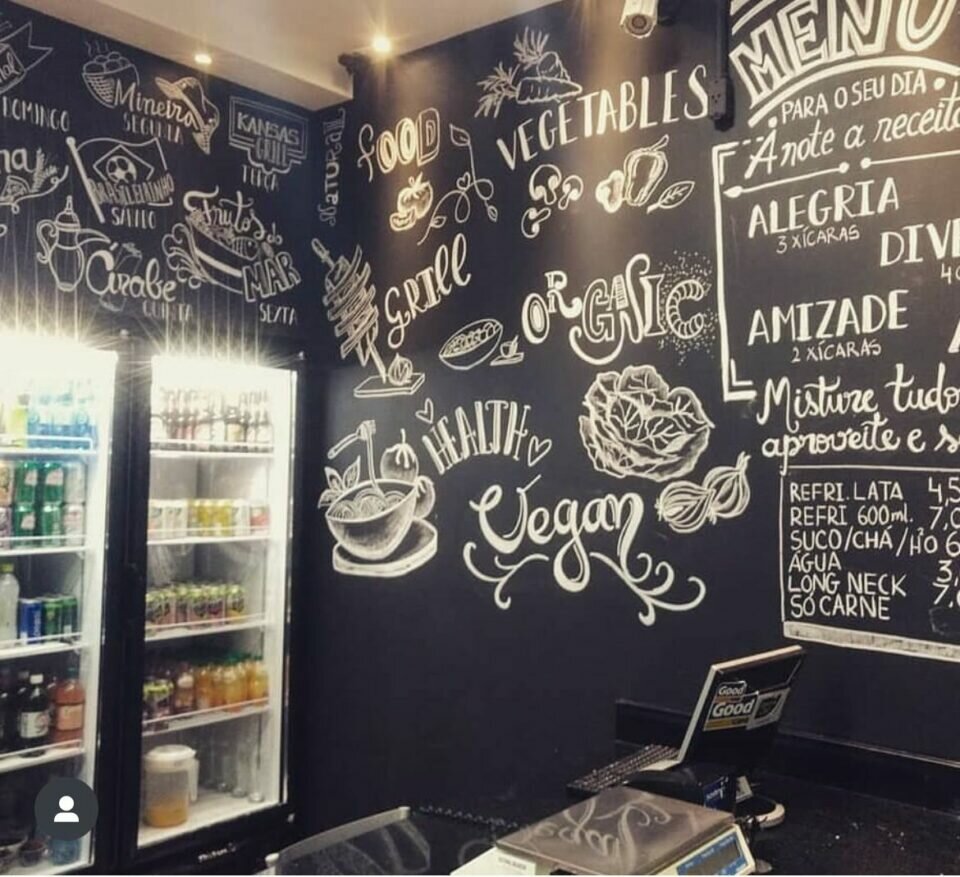 DOMINGO
Mineira
SEGUNDA
KANSAS
GRILL
TERÇA
BRASILEIRINHO
SÁBADO
Árabe
QUINTA
Frutos do
MAR
SEXTA
NATURAL
FOOD
VEGETABLES
GRILL
ORGANIC
HEALTH
Vegan
MENU
PARA O SEU DIA
Anote a receita
ALEGRIA
3 XÍCARAS
DIV
AMIZADE
2 XÍCARAS
Misture tudo
aproveite e s
REFRI. LATA 4,5
REFRI 600ml. 7,0
SUCO/CHÁ/H²O 6
ÁGUA 3,
LONG NECK 7,
SÓ CARNE
Good
Good